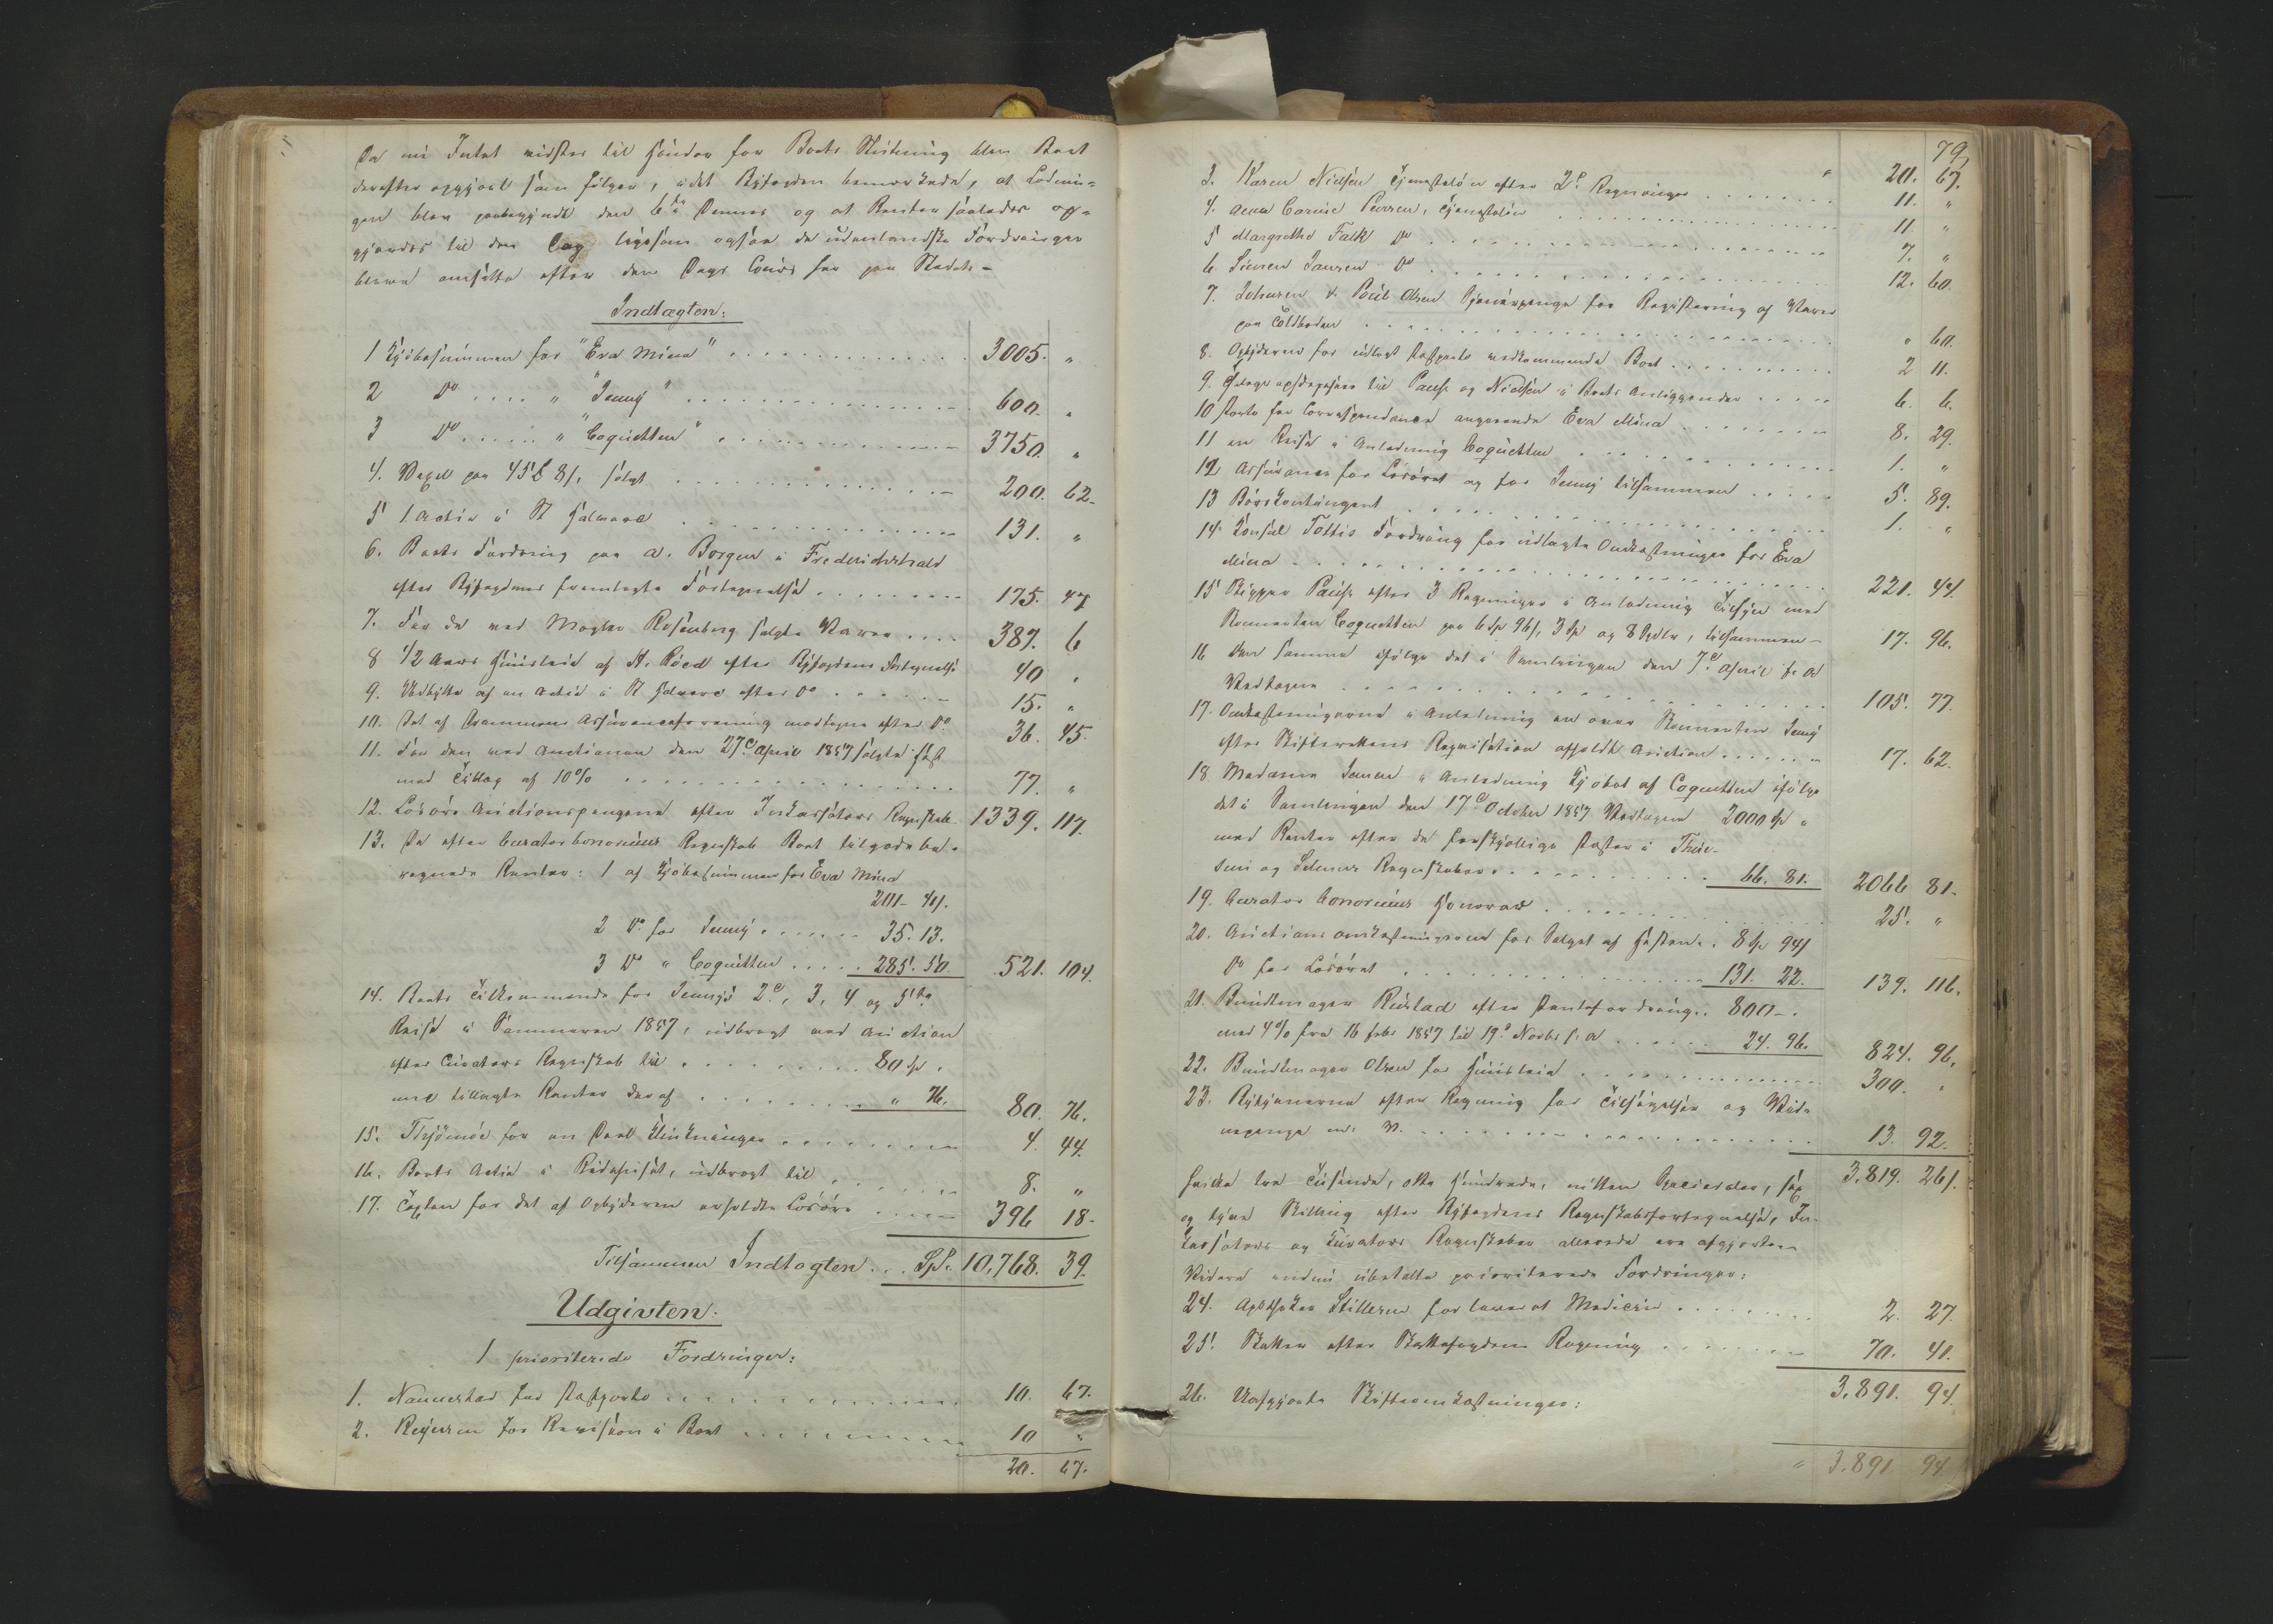 Da nu Intet vidstes til Hinder for Boets Slutning blev Boet
derefter opgjort som følger, idet Byfogden bemærkede, at Lodnin-
gen blev paabegyndt den 6te Dennes og at Renter saaledes op-
gjordes til den Dag ligesom ogsaa de udenlandske Fordringer
bleve ansatte efter den Dags Cours her paa Stedet. -
Indtægten:
1 Kjøbesummen for "Eva Mina" 3005. "
2 Do " "Jenny" 600. "
3 Do " "Coquetten" 3750. "
4. Vexel paa 45£ 8/, solgt 200. 62.
5 1 Actie i St Halvard 131. "
6. Boets Fordring paa A. Borgen i Frederikshald
efter Byfogdens fremlagte Fortegnelse 175. 47
7. For de ved Mægler Rosenberg solgte Varer 387. 6
8 1/2 Aars Huusleie af A. Röed efter Byfogdens Fortegnelse 40 "
9. Udbytte af en Actie i St Halvard efter Do 15. "
10. Det af Drammens Assuranceforening modtagne efter Do 36. 45.
11. For den ved Auctionen den 27de April 1857 solgte Hest
med Tillæg af 10% 77. "
12. Løsøre Auctionspengene efter Inkassators Regnskab 1339. 117.
13. De efter Curator bonorums Regnskab Boet tilgode be-
regnede Renter: 1 af Kjøbesummen for Eva Mina
201- 41.
2 Do for Jenny 35. 13.
3 Do " Coquetten 285. 50. 521. 104.
14. Boets Tilkommende for Jennys 2den, 3, 4 og 5te
Reise i Sommeren 1857, udbragt ved Auction
efter Curators Regnskab til 80 Sp.
med tillagte Renter deraf " 76. 80. 76.
15. Thjömöe for en Deel 4. 44.
16. Boets Actie i udbragt til 8. "
17. Taxten for det af Opbyderen erholdte Løsøre 396 18.
Tilsammen Indtægten Spd. 10,768. 39.
Udgivten:
1 prioriterede Fordringer:
1. Nannestad for Postporto 10. 67.
2. for Revision i Boet 10 "
20. 67.
79.
" 20. 67.
3. Karen Nielsen Tjenesteløn efter 2de Regninger 11. "
4. Anna Carine Tjenesteløn 11. "
5 Margrethe Falk Do 7. "
6. Simen Jansen Do 12. 60.
7. Johnsen & Poul Olsen for Registrering af Varer
paa Toldboden " 60.
8. Opbyderen for udlagt Postporto vedkommende Boet 2 11.
9. til Paust og Nielsen i Boets Anliggender 6. 6.
10 Porto for Correspondance angaaende Eva Mina 8. 29.
11 en Reise i Anledning Coquetten 1. "
12 Assurance for Løsøret og for Jenny tilsammen 5. 89.
13 Börskontingent 1. "
14. Konsul Tottis Fordring for udlagte Omkostninger for Eva
Mina 221. 44.
15 Skipper Paust efter 3 Regninger i Anledning Tilsyn med
Skonnerten Coquetten paa 6 Sp 96/, 3 Sp og 8 Spdlr, tilsammen 17. 96.
16 Den samme ifølge det i Samlingen den 7de April f. A
Vedtagne 105. 77.
17. Omkostningerne i Anledning en over Skonnerten Jenny
efter Skifterettens Requisition afholdt Auction 17. 62.
18. Madame Jensen i Anledning Kjöbet af Coquetten ifølge
det i Samlingen den 17de October 1857 Vedtagne 2000 Sp "
med Renter efter de forskjellige Poster i
og Regnskaber 66. 81. 2066 81.
19. Curator bonorums Honorar 25. "
20. Auctionsomkostningerne for Salget af Hesten 8 Sp 94/
Do for Løsøret 131. 22. 139. 116.
21. Buntmager Rustad efter Pantefordring. 800 - .
med 4% fra 16 Febr 1857 til 19de Novbr f. A 24. 96. 824. 96.
22. Buntmager Olsen for Huusleie 300. "
23. Bytjenerne efter Regning for Tilsigelser og Vid-
nepenge m. V. 13. 92.
hvilke tre Tusinde, otte Hundrede, nitten Speciedlr, sex 3,819. 26/.
og tyve Skilling efter Byfogdens Regnskabsfortegnelse, In-
kassators og Kurators Regnskaber allerede ere afgjorte.
Videre endnu ubetalte prioriterede Fordringer:
24. Apotheker Stillesen for leveret Medicin 2. 27.
25. Skatter efter Skattefogdens Regning 70. 41.
3,891. 94.
26. Uafgjorte Skifteomkostninger:
" 3,891. 94